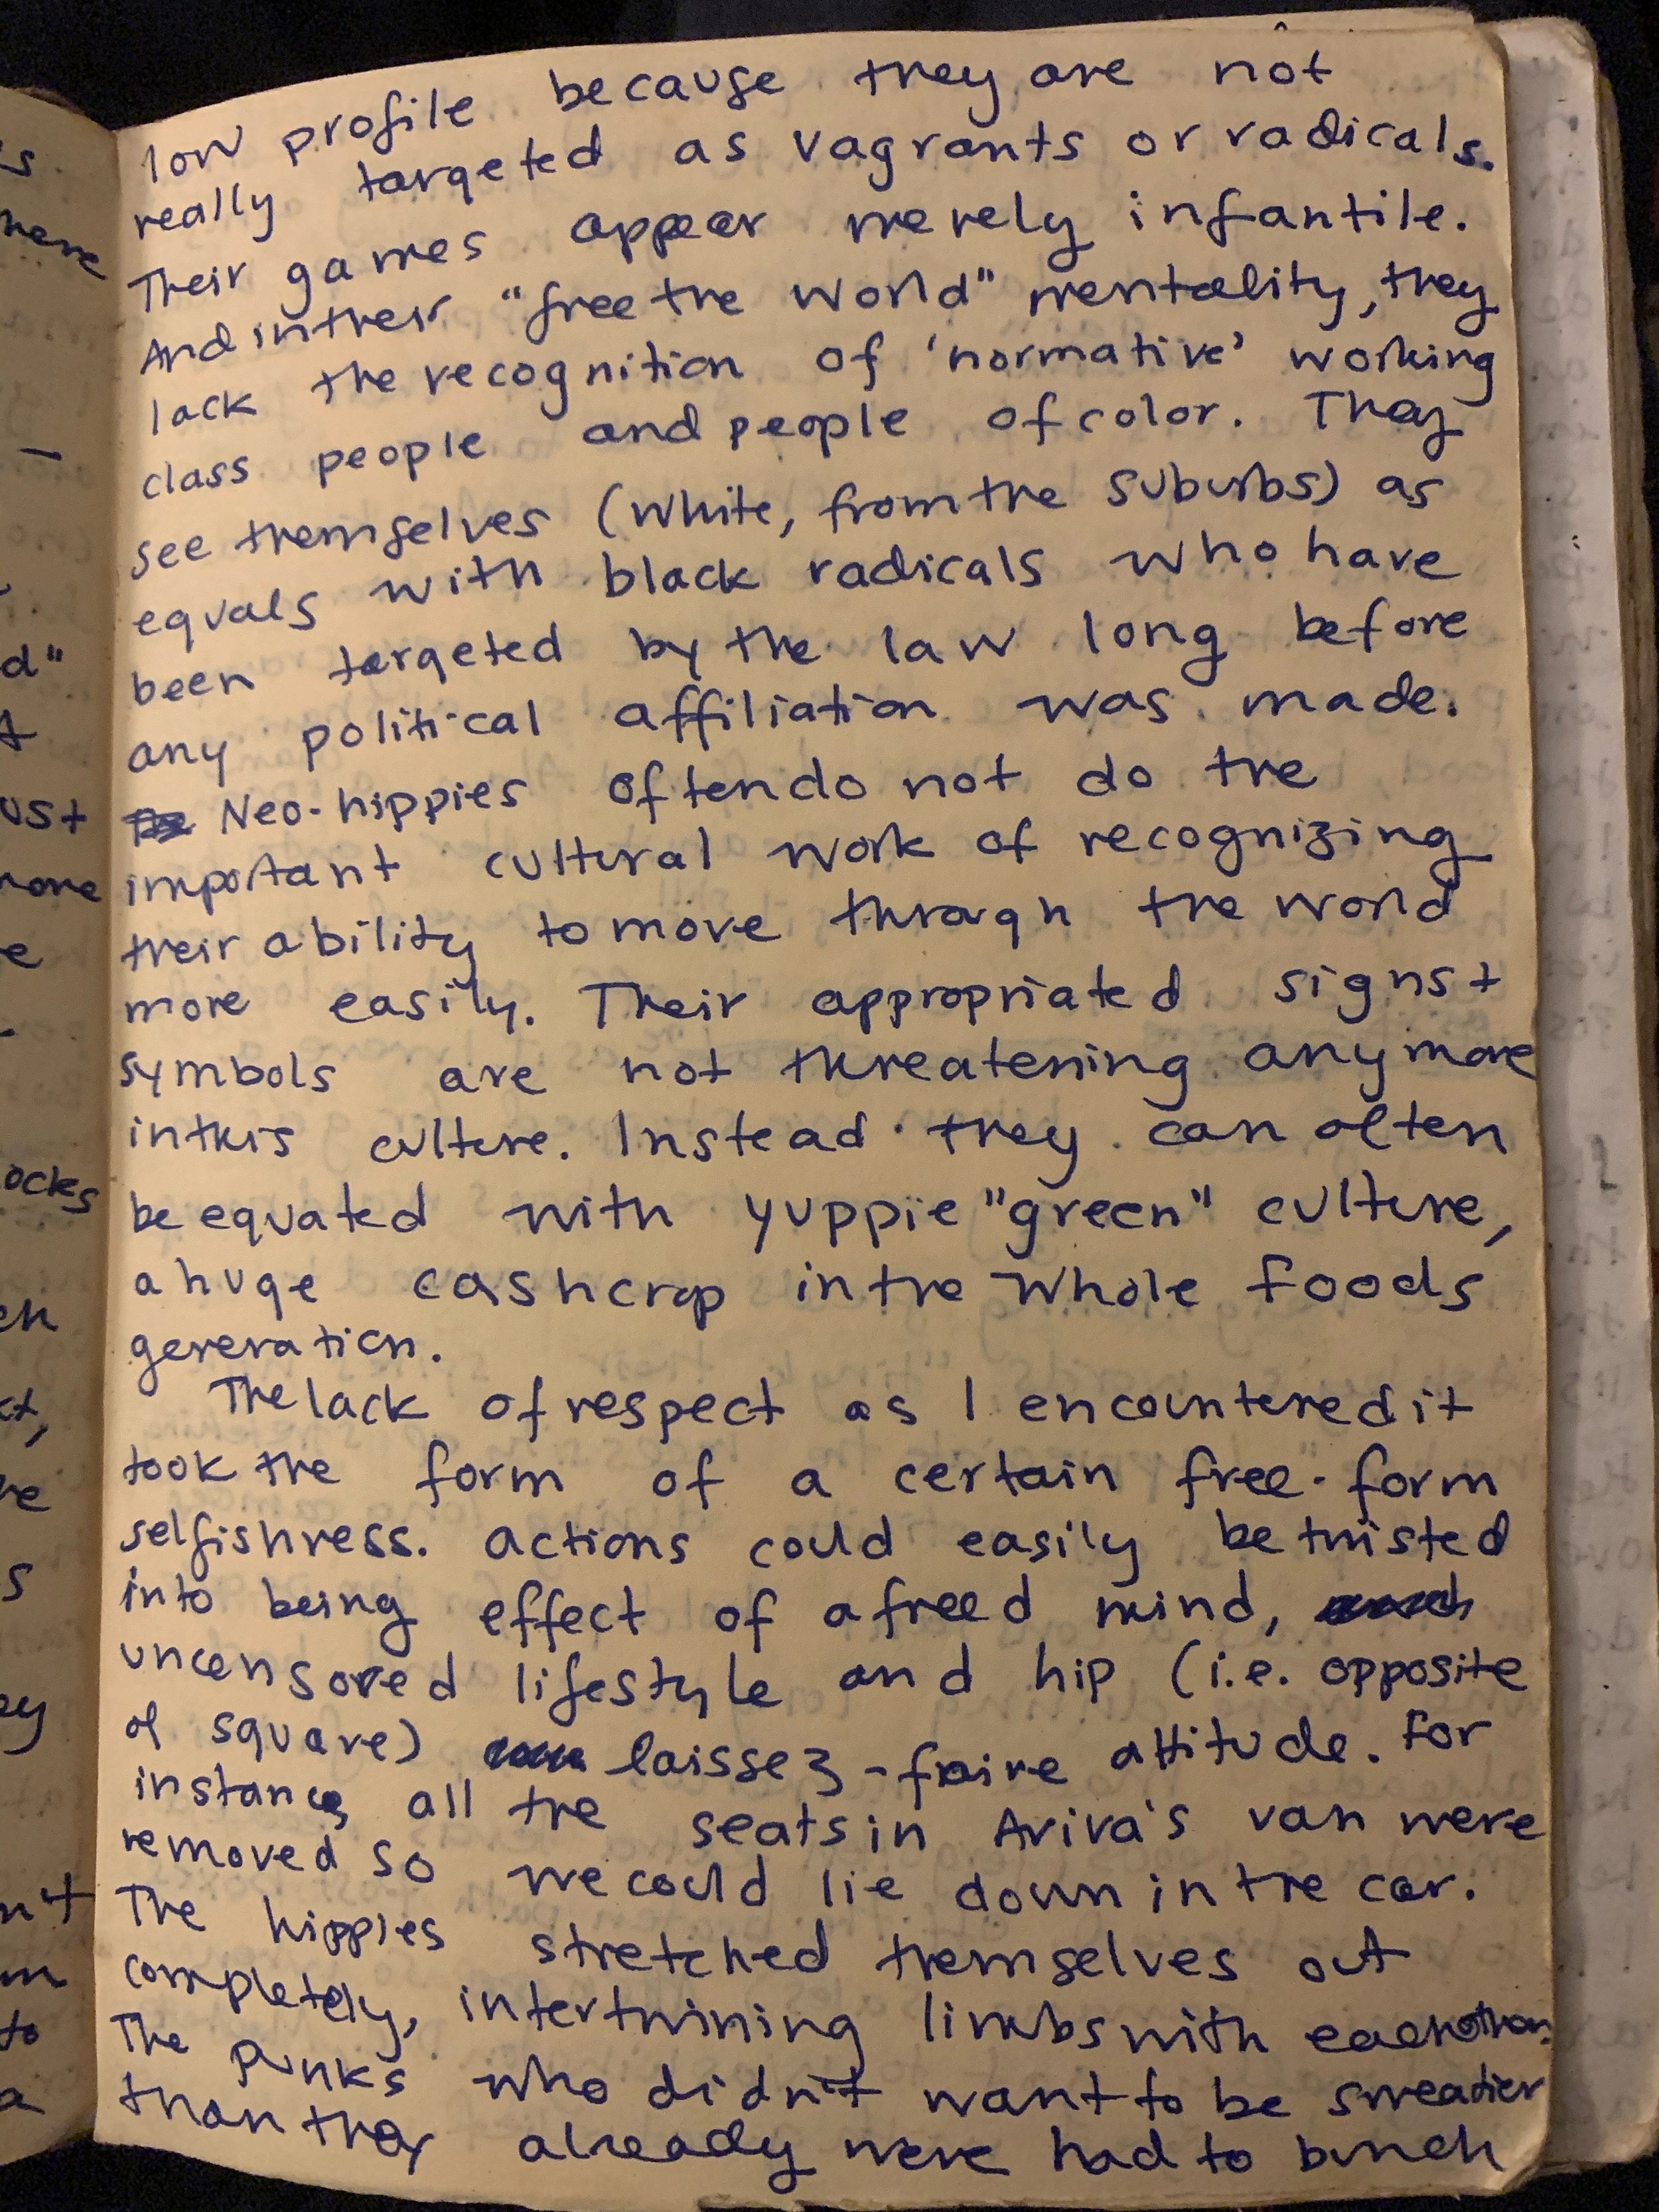 low profile because they are not
really targeted as vagrants or radicals.
Their games appear merely infantile.
And in their "free the world" mentality, they
lack the recognition of 'normative' working
class people and people of color. They
see themselves (white, from the suburbs) as
equals with black radicals who have
been targeted by the law long before
any political affiliation was made.
Neo-hippies often do not do the
important cultural work of recognizing
their ability to move through the world
more easily. Their appropriated signs +
symbols are not threatening anymore
in this culture. Instead they can often
be equated with yuppie "green" culture,
a huge cash crop in the Whole Foods
generation.
The lack of respect as I encountered it
took the form of a certain free-form
selfishness. Actions could easily be twisted
into being effect of a freed mind,
uncensored lifestyle and hip (i.e. opposite
of square) laissez-faire attitude. For
instance, all the seats in Aviva's van were
removed so we could lie down in the car.
The hippies stretched themselves out
completely, intertwining limbs with each other.
The punks who didn't want to be sweatier
than they already were had to bunch